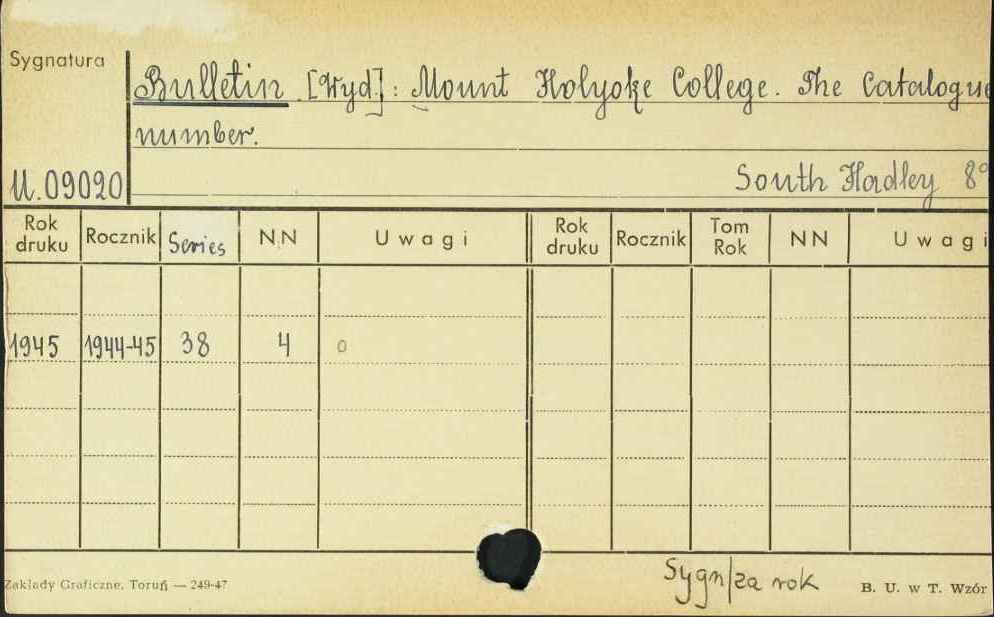 Sygnatura
Bulletin [Wyd]: Mount Holyoke College. The Catalogue
number.
U.09020
South Hadley 8°
Rok druku Rocznik Series NN Uwagi Rok druku Rocznik Tom Rok NN Uwagi
1945 1944-45 38 4 o
Sygn/za rok
Zakłady Graficzne, Toruń — 249-47
B. U. w T. Wzór